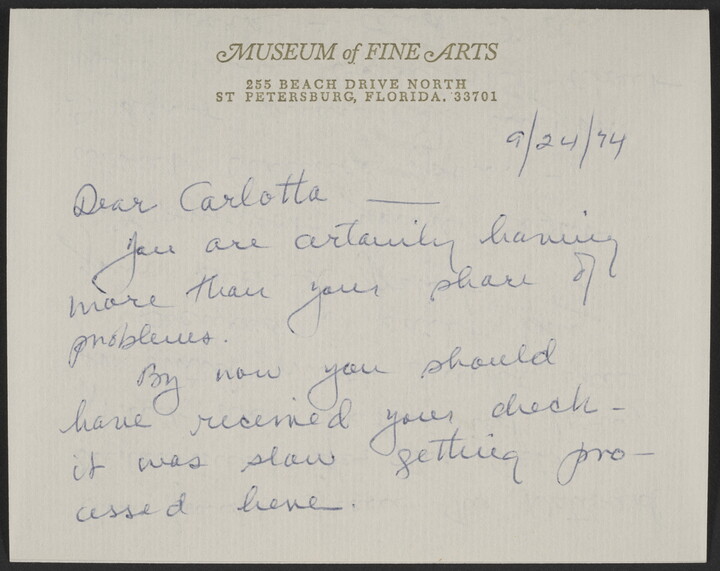 MUSEUM of FINE ARTS
255 BEACH DRIVE NORTH
ST PETERSBURG, FLORIDA. 33701
9/24/74
Dear Carlotta —
You are certainly having
more than your share of
problems.
By now you should
have received your check -
it was slow getting pro-
cessed here.